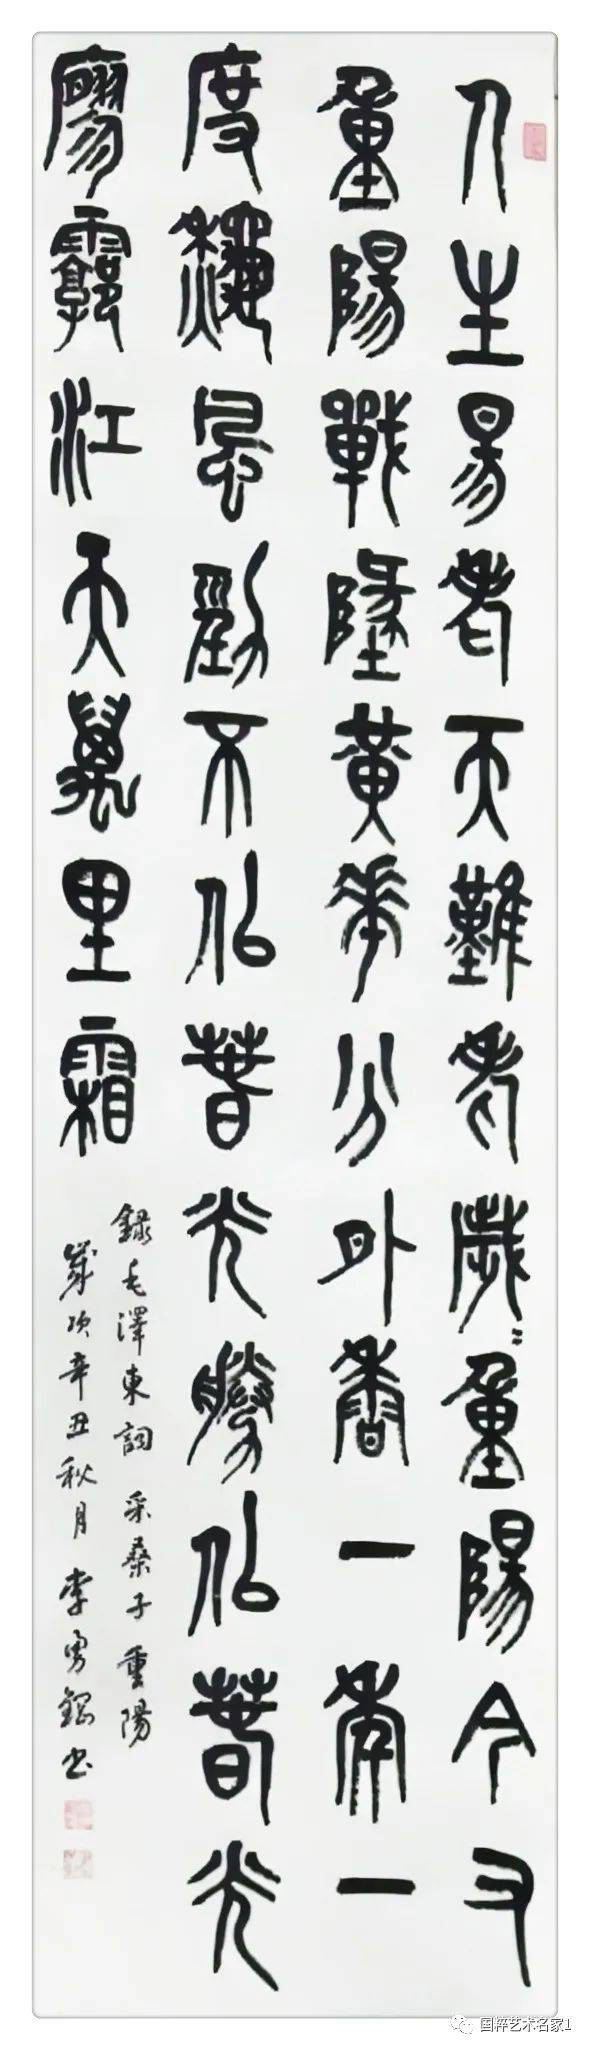 人生易老天難老歲〻重陽今又
重陽戰墬黃華分外香一年一
度穐風勁不佀春光勝佀春光
廖霩江天萬里霜
録毛澤東詞采桑子重陽
歲次辛丑秋月李勇鋼书
国粹艺术名家1